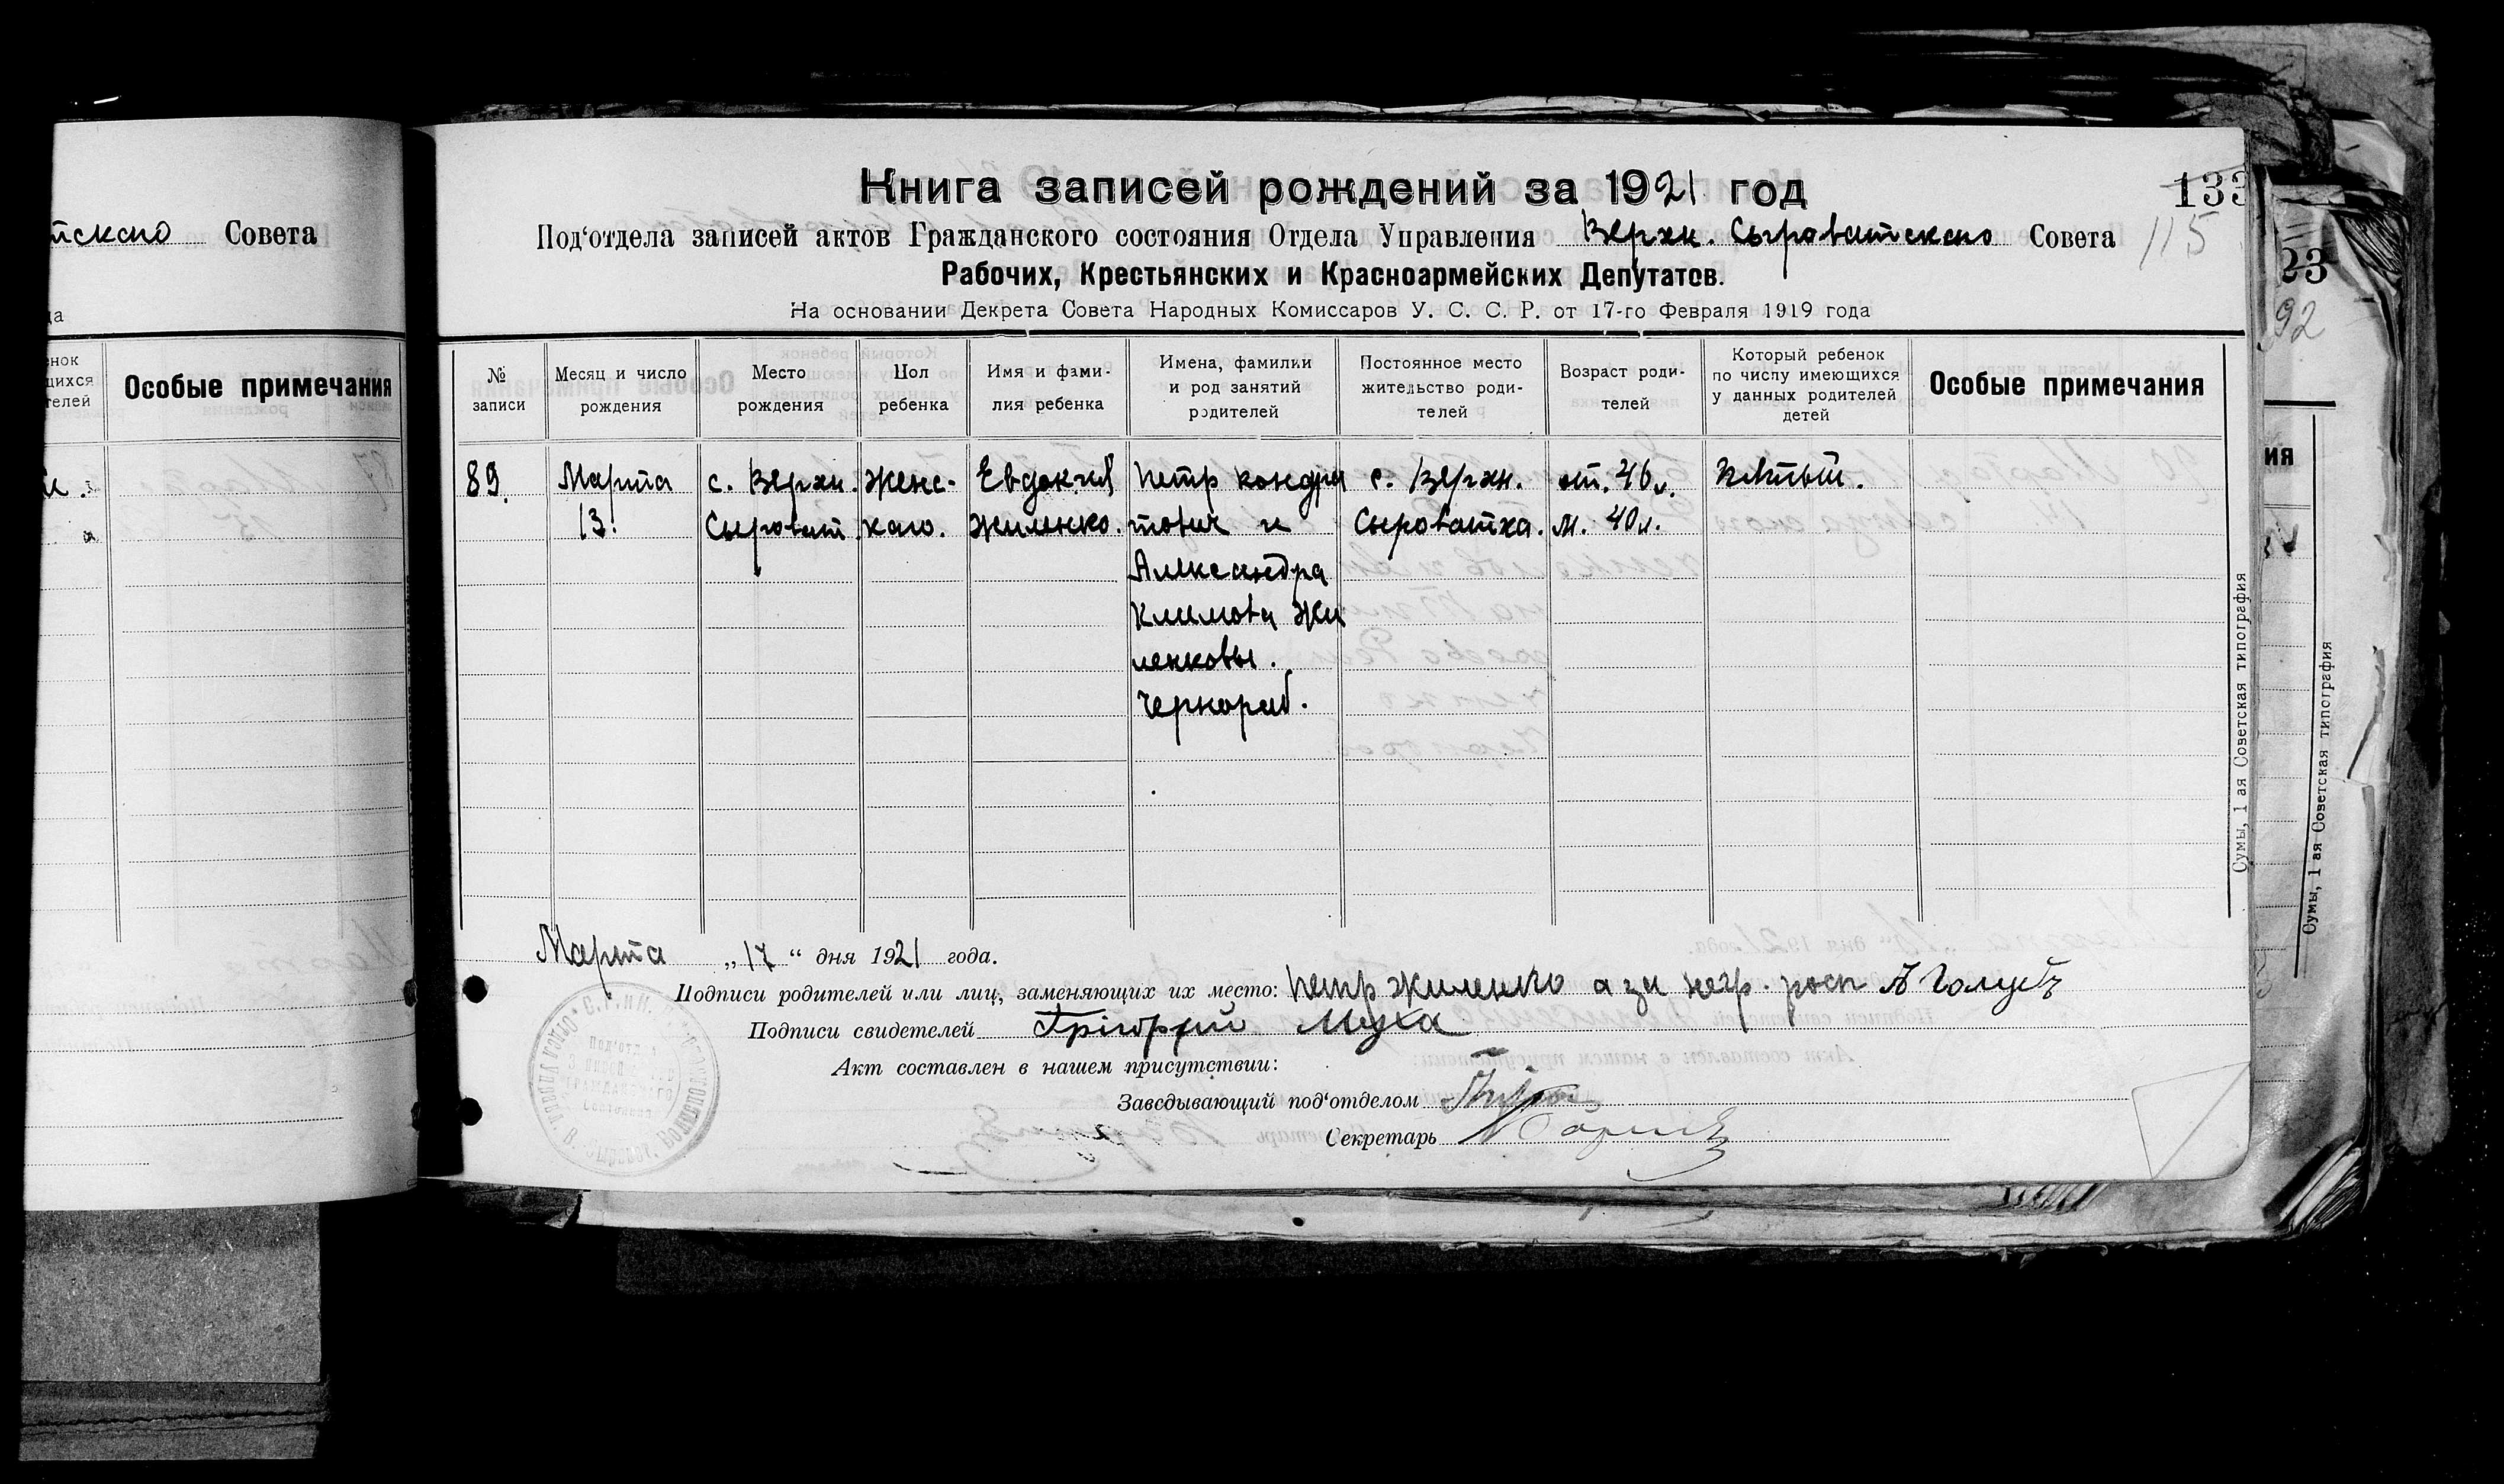 тскаго Совета
да
енок
щихся
телей
Особые примечания
Книга записей рождений за 1921 год
133
115
Под‘отдела записей актов Гражданского состояния Отдела Управления Верхн. Сыроватскаго Совета
Рабочих, Крестьянских и Красноармейских Депутатов.
На основании Декрета Совета Народных Комиссаров У. С. С. Р. от 17-го Февраля 1919 года
№ записи
Месяц и число рождения
Место рождения
Пол ребенка
Имя и фами-
лия ребенка
Имена, фамилии
и род занятий
родителей
Постоянное место
жительство роди-
телей
Возраст роди-
телей
Который ребенок
по числу имеющихся
у данных родителей
детей
Особые примечания
89.
Марта
13.
с. Верхн.
Сыроват.
женс-
каго.
Евдокия
Жиленко.
Петр Кондра
тович и
Александра
Климова Жи
ленковы.
Чернораб.
с. Верхн.
Сыроватка.
от. 46 л.
м. 40 л.
пятый.
Марта „17“ дня 1921 года.
Подписи родителей или лиц, заменяющих их место: Петр Жиленко а за негр. росп А Голубъ
Подписи свидетелей Грігорій Муха
Акт составлен в нашем присутствии:
Заведывающий под‘отделом
Секретарь
Сумы, 1 ая Советская типография
23
92
ия
Сумы, 1 ая Советская типография